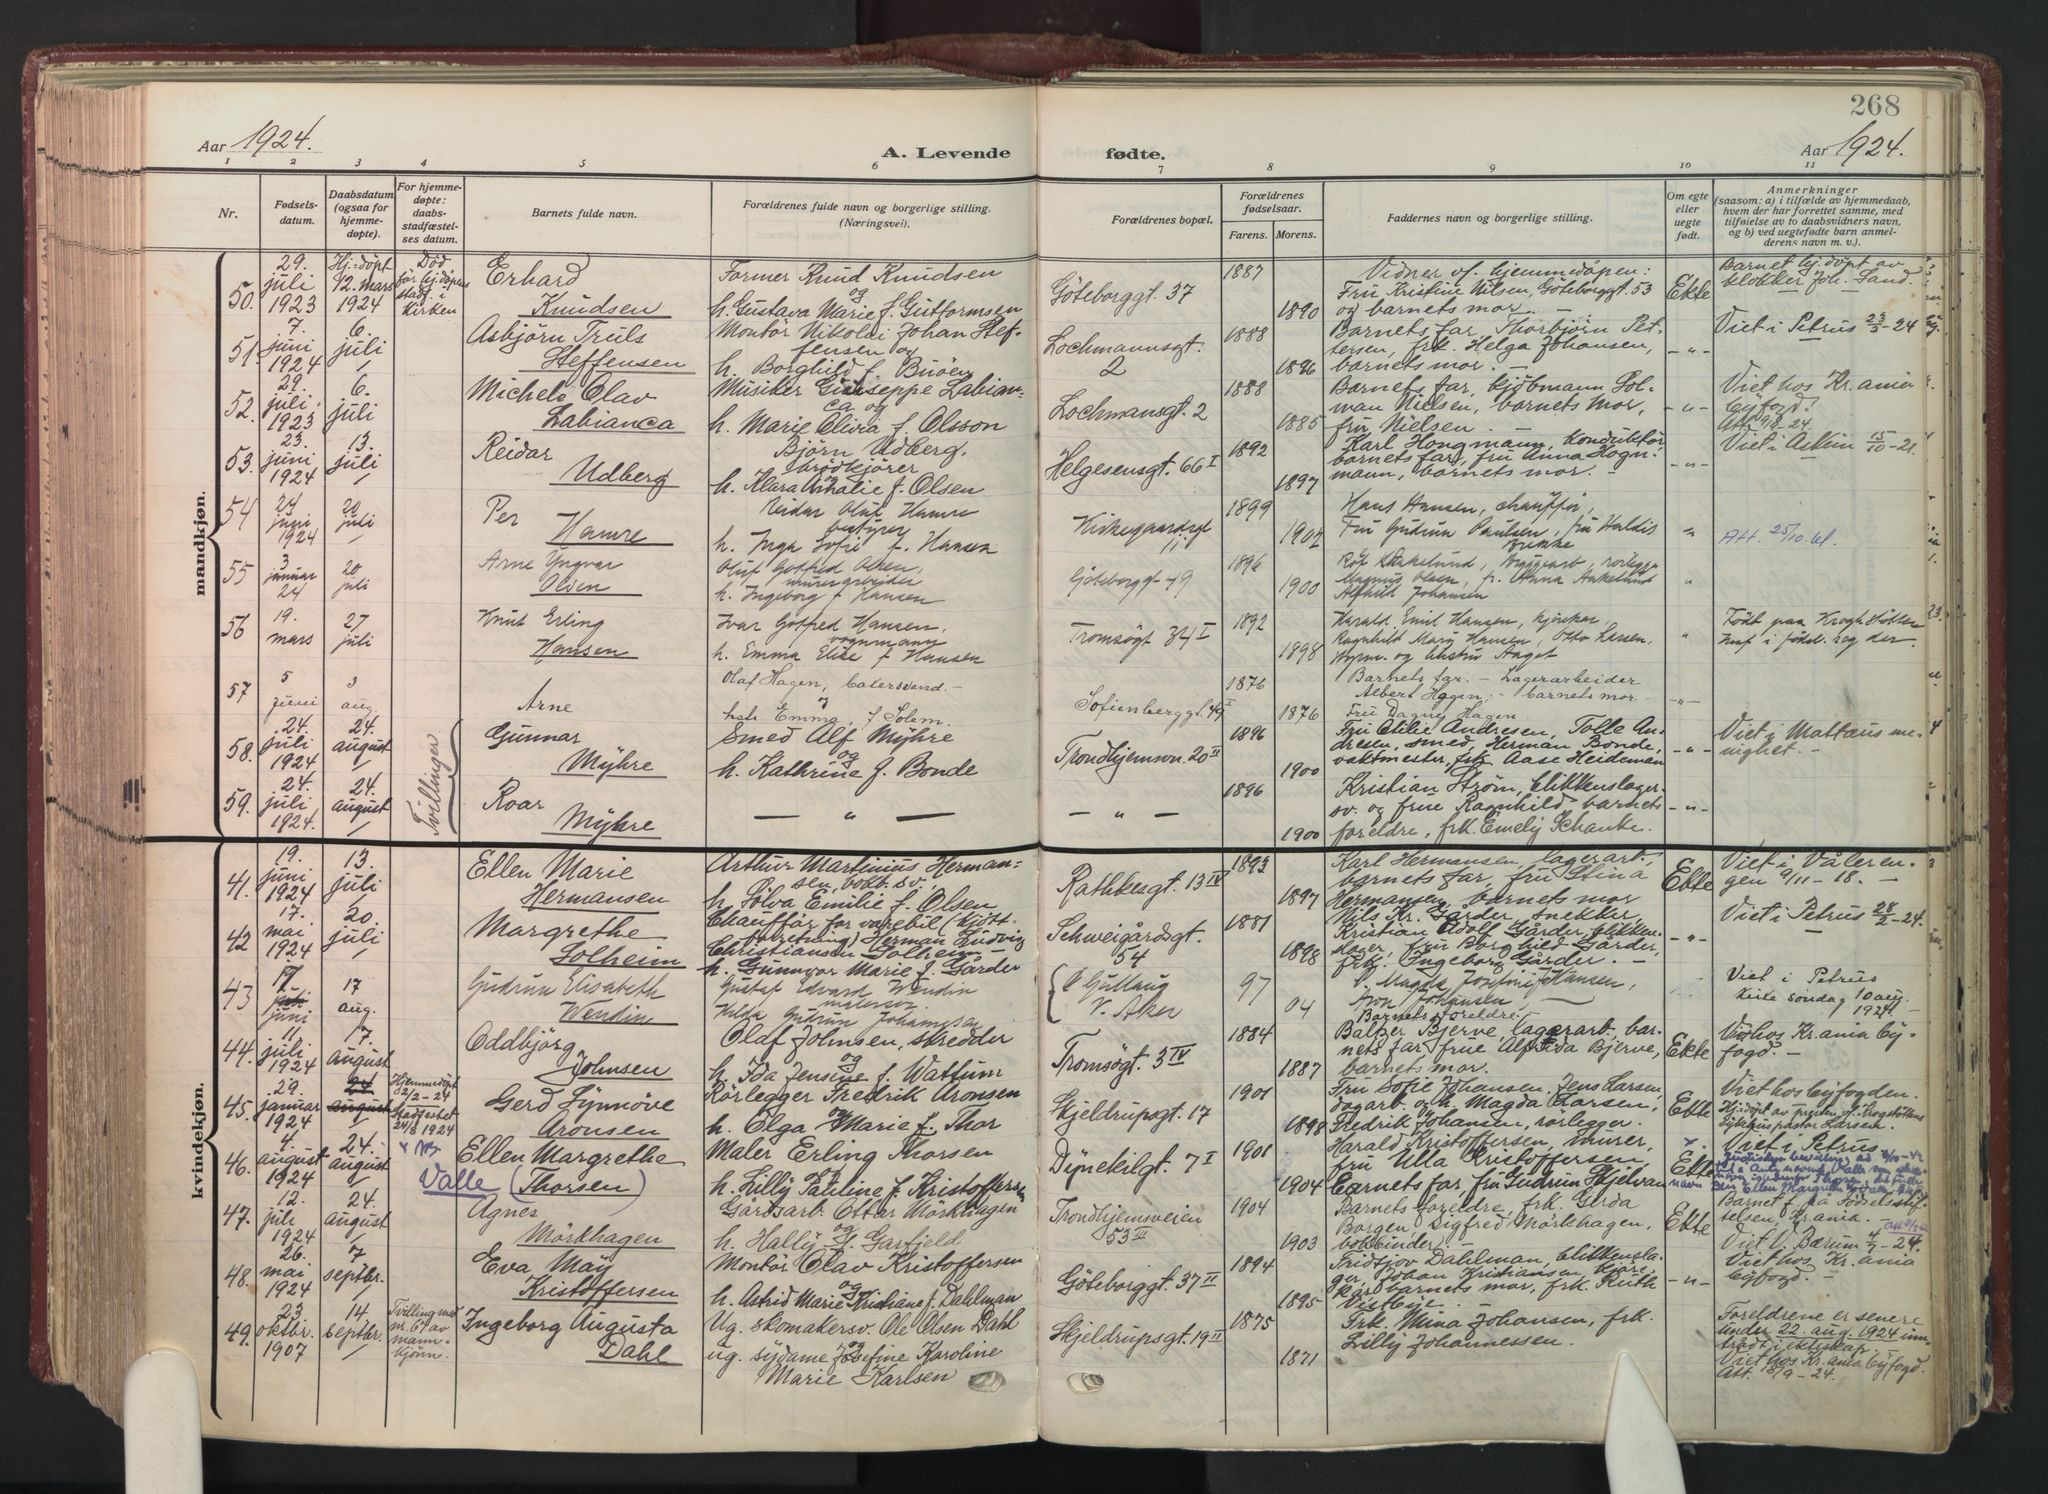 268
Aar 1924.
A. Levende fødte.
Aar 1924.
1 2 3 4 5 6 7 8 9 10 11
Nr.
Fødsels-
datum.
Daabsdatum
(ogsaa for
hjemme-
døpte).
For hjemme-
døpte:
daabs-
stadfæstel-
ses datum.
Barnets fulde navn.
Forældrenes fulde navn og borgerlige stilling.
(Næringsvei).
Forældrenes bopæl.
Forældrenes
fødselsaar.
Farens. Morens.
Faddernes navn og borgerlige stilling.
Om egte
eller
uegte
født.
Anmerkninger
(saasom: a) i tilfælde av hjemmedaab,
hvem der har forrettet samme, med
tilføielse av to daabsvidners navn,
og b) ved uegtefødte barn anmel-
derens navn m. v.).
mandkjøn.
50.
29.
juli
1923
Hj.døpt
12. mars
1924
Død
før hj.døpen
stadf. i
kirken
Erhard
Knudsen
Former Knud Knudsen
og
h. Gustava Marie f. Guttormsen
Göteborggt. 37
1887
1890
Vidner v. hjemmedåpen:
Fru Kristine Nilsen, Göteborggt. 53
og barnets mor. —
Ekte
Barnet hj. døpt av
blokker Joh. Sand.
51.
7.
juni
1924
6.
juli
Asbjörn Truls
Steffensen
Montör Nikolai Johan Stef-
fensen og
h. Borghild f. Buöen
Lochmannsgt.
2
1888
1896
Barnets far, Thorbjörn Pet-
tersen, frk. Helga Johansen,
barnets mor. —
— " —
Viet i Petrus 23/3 - 24
52.
29.
juli
1923
6.
juli
Michele Olav
Labianca
Musiker Giuseppe Labian-
ca og
h. Marie Elvira f. Olsson
Lochmansgt. 2
1888
1885
Barnets far, kjöbmann Sol-
man Nielsen, barnets mor,
fru Nielsen. —
— " —
Viet hos Kr.ania
Byfogd.
53.
23.
juni
1924
13.
juli
Reidar
Udberg
Björn Udberg,
brödkjörer
h. Klara Amalie f. Olsen
Helgesensgt. 66 I
1892
1897
Karl Hongmann, konduktör,
barnets far, fru Anna Hogn-
mann, barnets mor. —
— " —
Viet i Askim 15/10 - 21.
54
24
juni
1924
20
juli
Per
Hamre
Reidar Oluf Hamre
bestyrer
h. Inga Sofie f. Hansen
Kirkegaardsgt
11
1899
1902
Hans Hansen, chauffør,
Fru Gudrun Paulsen, fru Haldis
"
Att. 25/10.61.
55
3
januar
24
20
juli
Arne Yngvar
Olsen
Oluf Gotfred Olsen,
murerarbeider
h. Ingeborg f. Hansen
Göteborggt 49
1896
1900
Magnus Olsen, fr. Anna
Alfhild Johansen
"
56
19.
mars
27
juli
Knut Erling
Hansen
Ivar Gotfred Hansen,
vognmann
h. Emma Elise f. Hansen
Tromsögt 34 I
1892
1898
Harald Emil Hansen, kjørekar,
Ragnhild Marg Hansen, Otto Larsen,
"
Födt paa Krogh Støtten
57
5
juni
3
aug.
Arne
Olaf Hagen, bakersvend. —
hstr. Emma, f. Solem.
Sofienberggt. 49 I
1876
1876
Barnets far. — Lagerarbeider
Albert Hagen; — barnets mor. —
Fru Dagny Hagen
— " —
58.
24.
juli
1924
24.
august
Tvillinger
Gunnar
Myhre
Smed Alf Myhre
og
h. Kathrine f. Bonde
Trondhjemsvn. 20 II
1896
1900
Fru Otilie Andresen, Tolle An-
dresen, smed, Herman Bonde,
vaktmester, frk. Aase Heideman
— " —
Viet i Mattæus me-
nighet. —
59.
24.
juli
1924.
24.
august
Roar
Myhre
— " —
— " —
1896
1900
Kristian Ström, blikkenslager-
sv. og frue Ragnhild, barnets
foreldre, frk. Emely Schanke.
— " —
kvindekjøn.
41.
19.
juni
1924
13.
juli
Ellen Marie
Hermansen
Arthur Martinius Herman-
sen, bokb. sv.,
h. Sölva Emilie f. Olsen
Rathkesgt. 13 IV
1893
1897
Karl Hermansen, lagerarb.,
barnets far, fru Stina
Hermansen, barnets mor
Ekte
Viet i Våleren-
gen 9/11 - 18. —
42
17.
mai
1924
20.
juli
Margrethe
Solheim
Chauffør for varebil (kjött-
forretning) Herman Ludvig
Christiansen Solheim
h. Gunnvor Marie f. Gårder
Schweigårdsgt.
54
1881
1898
Nils Kr. Gårder, snekker,
Kristian Adolf Gårder, blikken-
slager, fru Borghild Gårder,
frk. Ingeborg Gårder. —
— " —
Viet i Petrus 28/2 - 24.
43
17
juni
17
aug.
Gudrun Elisabeth
Wendin
Gustaf Edvard Wendin
malersv.
Hilda Gudrun Johansen
Gullaug
V. Aker
97
04
Magda Josefine Hansen,
Johansen
Barnets foreldre.
Viet i Petrus
kirke söndag 10 aug.
1924
44.
11
juli
1924
7.
august
Oddbjörg
Johnsen
Olaf Johnsen, skredder
og
h. Ida Jensine f. Wattum
Tromsögt. 3 IV
1884
1887
Baltzer Bjerve, lagerarb. bar-
nets far, frue Alfhilda Bjerve,
barnets mor.
Ekte
Viet hos Kr.ania By-
fogd. —
45.
29.
januar
1924
24
august
Hjemmedöpt
22/2 - 24
Stadfestet
24/8 1924
Gerd Synnöve
Aronsen
Rörlegger Fredrik Aronsen
og
h. Olga Marie f. Thor
Skjeldrupsgt. 17
1901
1898
Fru Sofie Johansen, Jens Larsen,
dagarb. og h. Magda Larsen,
Fredrik Johansen, rörlegger.
Ekte
Viet hos Byfogden.
Hj.döpt av presten v. Krogstötten
Sykehuspastor Larsen.
46.
4.
august
1924
24.
august
x NB
Valle
Ellen Margrethe
(Thorsen)
Maler Erling Thorsen
h. Lilly Pauline f. Kristoffersen
Dynekilgt. 7 I
1901
1904
Harald Kristoffersen, murer,
fru Ulla Kristoffersen,
Barnets far, fru Gudrun Skjelvan
Ekte
Viet i Petrus
47.
12.
juli
1924
24.
august
Agnes
Mörkhagen
Gårdsarb. Ottar Mörkhagen
og
h. Hally H. Garfjeld
Trondhjemsveien
53 III
1904
1903
Barnets foreldre, frk. Gerda
Borgen, Sigfred Mörkhagen,
bokbinder. —
Ekte
Barnet f. på Födselsstif-
telsen, Kr.ania.
Viet i Bærum 4/7 - 24.
48.
26.
mai
1924
7
septbr.
Eva May
Kristoffersen
Montör Olav Kristoffersen
og
h. Astrid Marie Kristiane f. Dahlman
Göteborggt. 37 II
1894
1895
Fridtjov Dahlman, blikkensla-
ger, Johan Kristiansen, kjöre-
kar, barnets mor, frk. Ruth
— " —
Viet hos Kr.ania
Byfogd. —
49.
23
oktbr.
1907
14
septbr.
Tvilling med
nr. 61 av
mann-
kjönn.
Ingeborg Augusta
Dahl
Ug. skomakersv. Ole Olsen Dahl
og
ug. sydame Josefine Karoline
Marie Karlsen
Skjeldrupsgt. 19 II
1875
1871
Frk. Mina Johansen, frk.
Lilly Johannessen.
Foreldrene er senere
under 22 aug. 1924 inn-
trådt i ekteskap.
Viet hos Kr.ania Byfogd.
Att. 18/9 - 24.